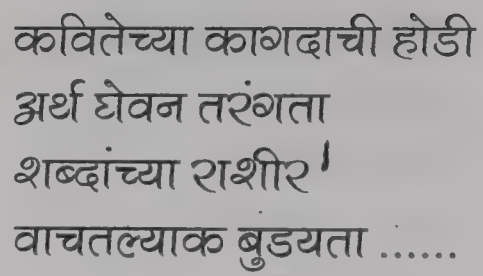 कवितेच्या कागदाची होडी
अर्थ घेवन तरंगता
शब्दांच्या राशीर
वाचतल्याक बुंडयता ......